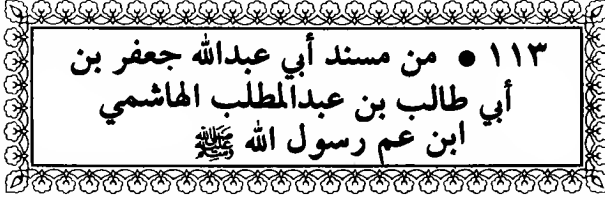 ١١٣ ● من مسند أبي عبدالله جعفر بن
أبي طالب بن عبدالمطلب الهاشمي
ابن عم رسول الله ﷺ